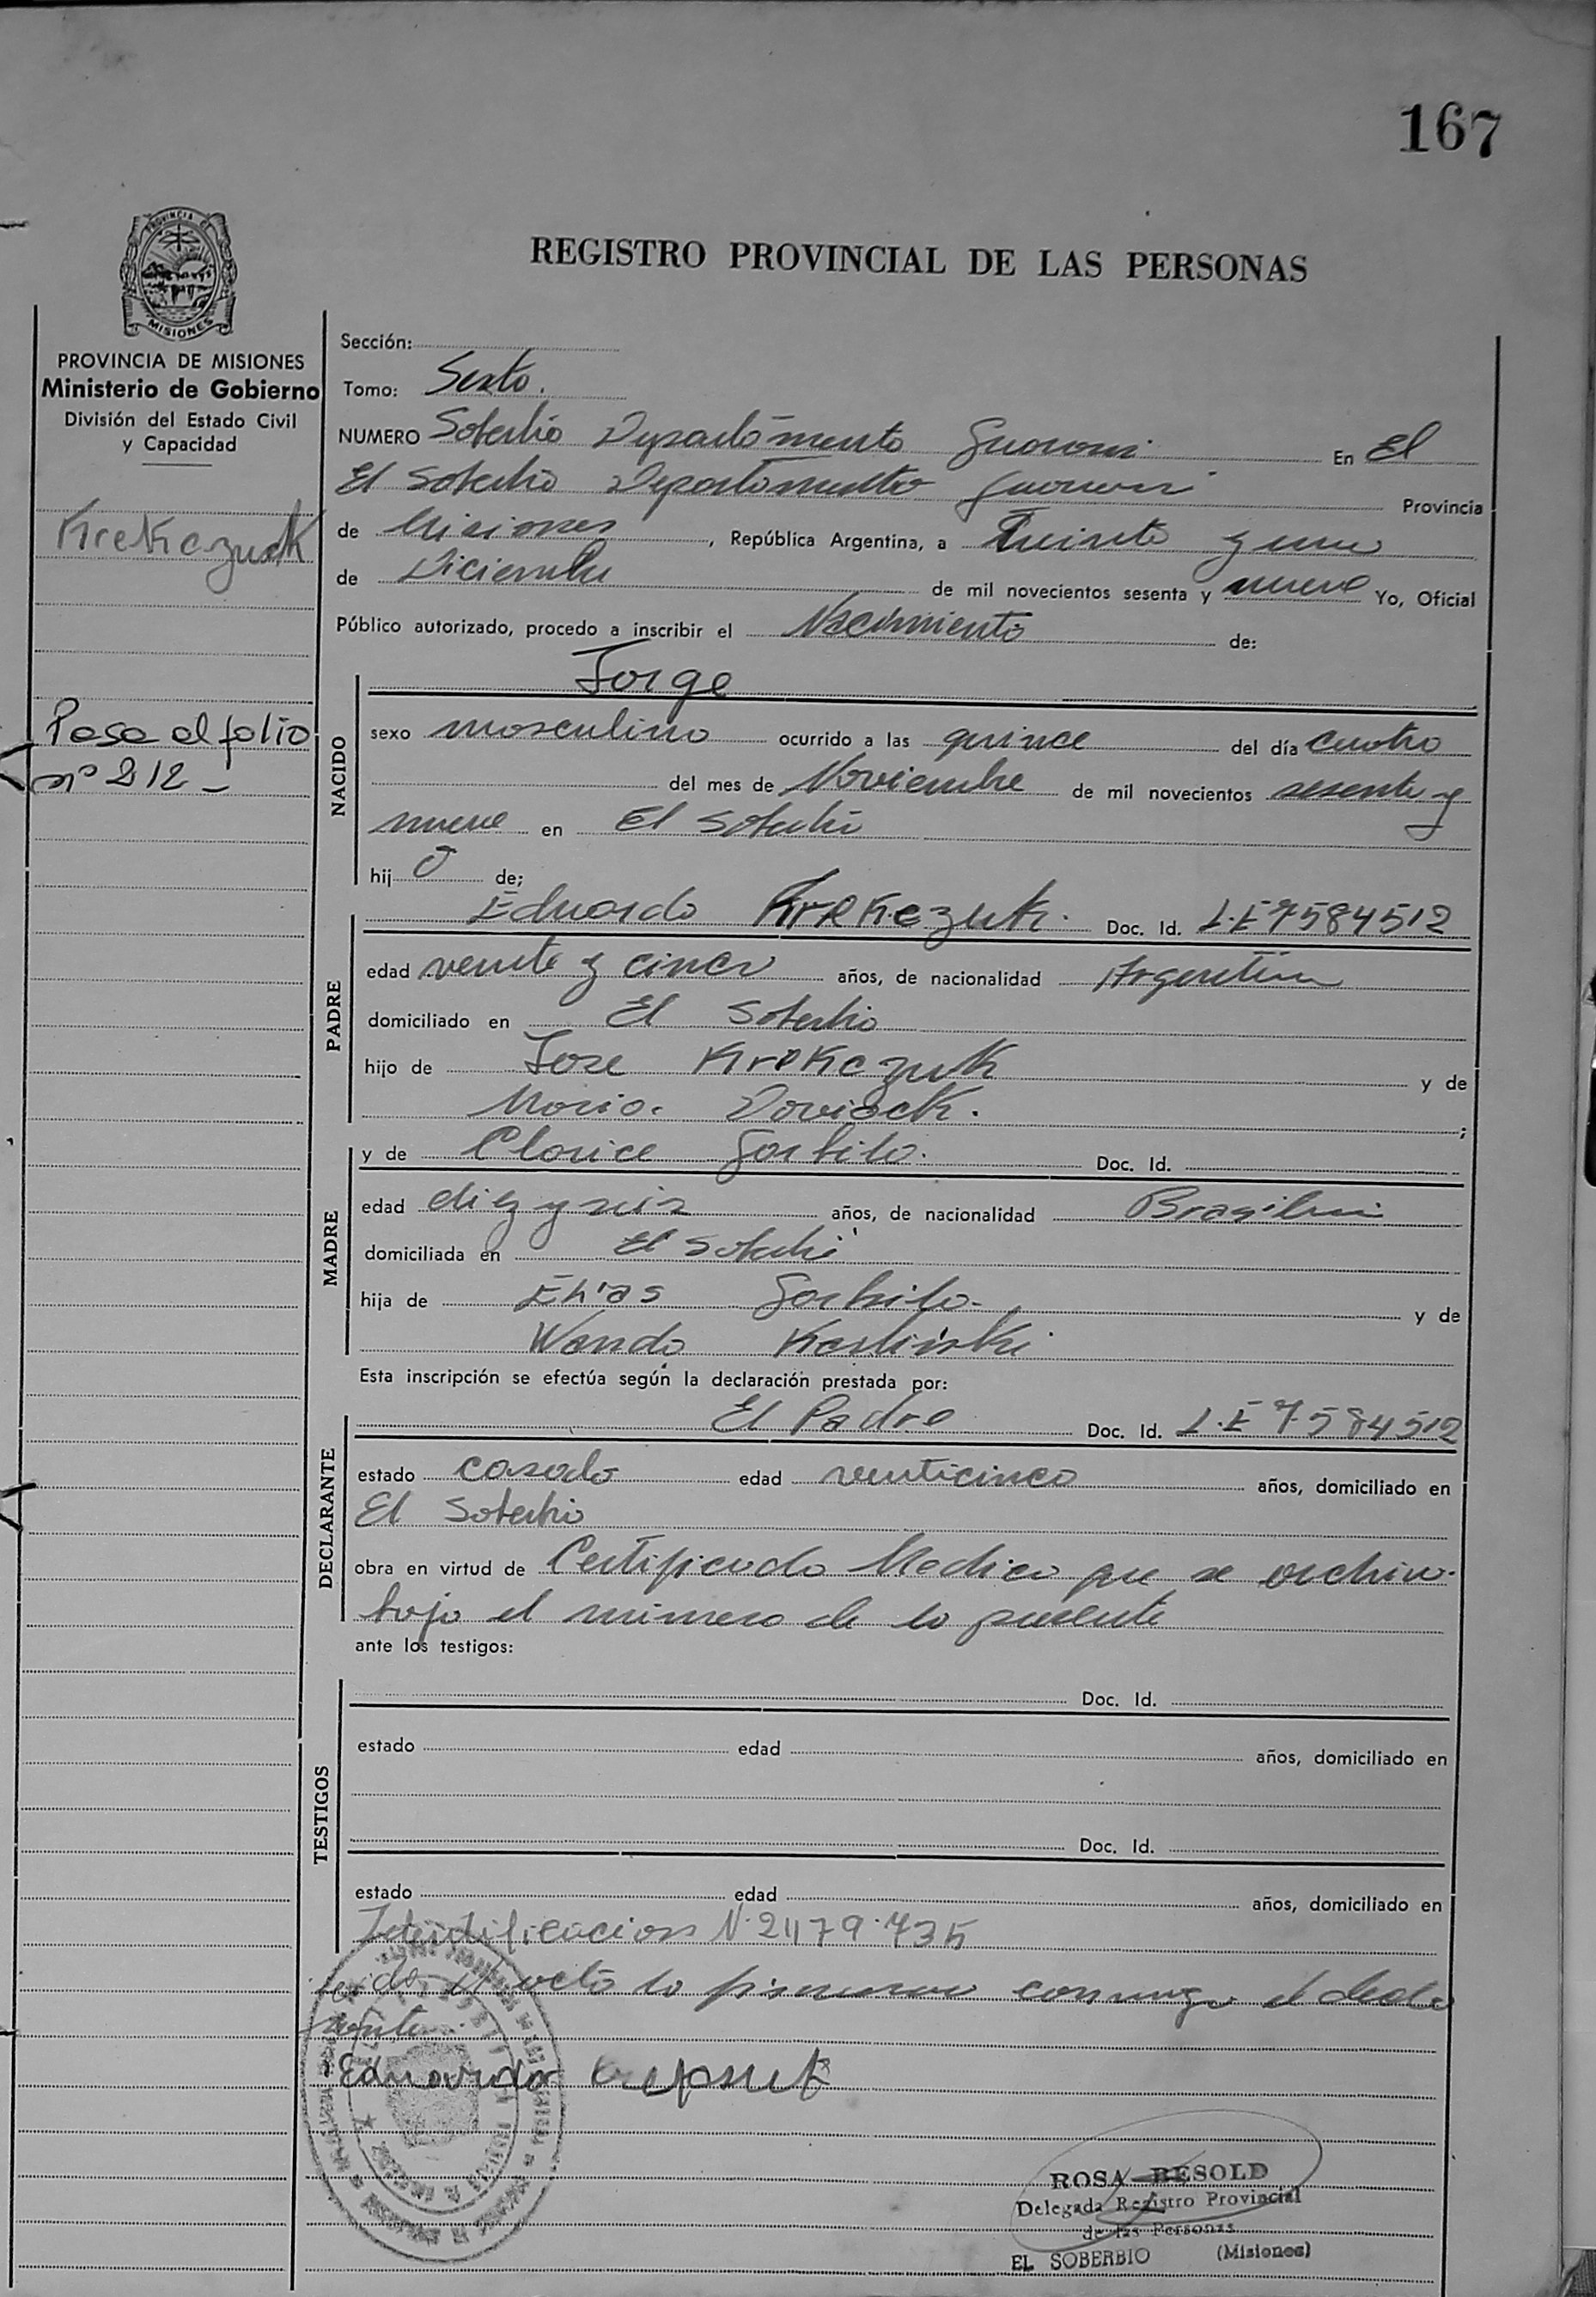 167
PROVINCIA DE MISIONES
REGISTRO PROVINCIAL DE LAS PERSONAS
PROVINCIA DE MISIONES
Ministerio de Gobierno
División del Estado Civil
y Capacidad
Krekczuk
Pasa al folio
nº 212 -
Sección:
Tomo: Sexto.
NUMERO Soberbio Departamento Guarani En El
El Soberbio Departamento Guarani Provincia
de Misiones, República Argentina, a Treinta y uno
de Diciembre de mil novecientos sesenta y nueve Yo, Oficial
Público autorizado, procedo a inscribir el Nacimiento de:
NACIDO
Jorge
sexo masculino ocurrido a las quince del día cuatro
del mes de Noviembre de mil novecientos sesenta y
nueve en El Soberbio
hij o de;
PADRE
Eduardo Krekczuk. Doc. Id. L.E 7584512
edad veinte y cinco años, de nacionalidad Argentina
domiciliado en El Soberbio
hijo de Jose Krekczuk y de
Maria. Doviack. ;
MADRE
y de Clarice Doc. Id.
edad diez y seis años, de nacionalidad
domiciliada en El Soberbio
hija de Elias y de
Wanda
Esta inscripción se efectúa según la declaración prestada por:
DECLARANTE
El Padre Doc. Id. L.E 7584512
estado casado edad veinticinco años, domiciliado en
El Soberbio
obra en virtud de Certificado Medico que se archiva
bajo el numero de la presente
ante los testigos:
TESTIGOS
Doc. Id.
estado edad años, domiciliado en
Doc. Id.
estado edad años, domiciliado en
Identificacion Nº
Leida el acta la firmaron conmigo el decla
rante.
Eduardo
ROSA BESOLD
Delegada Registro Provincial
de las Personas
EL SOBERBIO (Misiones)